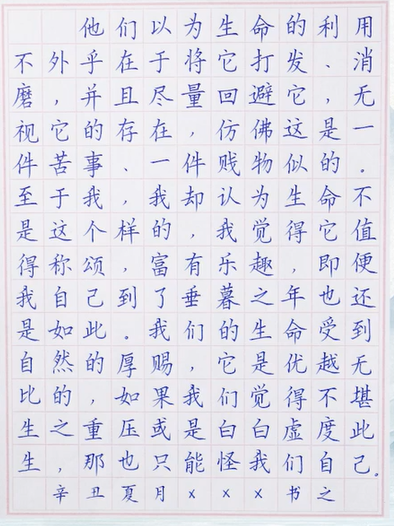 他们以为生命的利用
不外乎在于将它打发、消
磨，并且尽量回避它，无
视它的存在，仿佛这是一
件苦事、一件贱物似的。
至于我，我却认为生命不
是这个样的，我觉得它值
得称颂，富有乐趣，即便
我自己到了垂暮之年也还
是如此。我们的生命受到
自然的厚赐，它是优越无
比的，如果我们觉得不堪
生之重压或是白白虚度此
生，那也只能怪我们自己。
辛丑夏月×××书之